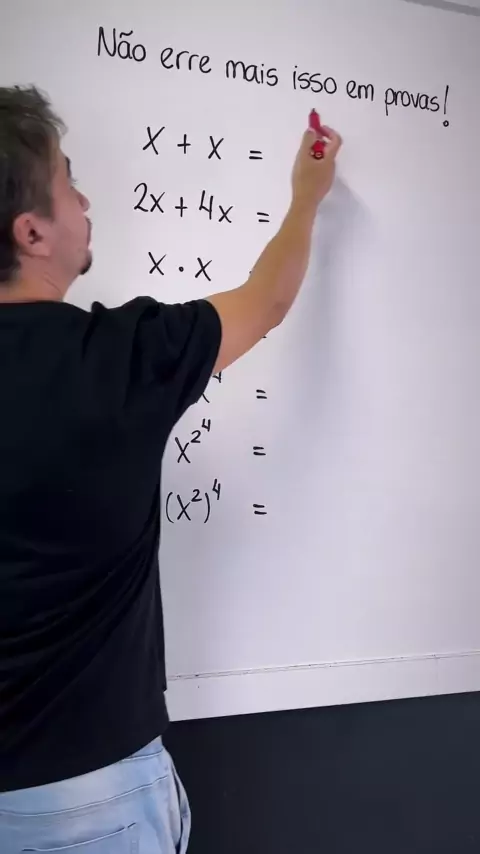 Não erre mais isso em provas!
x + x =
2x + 4x =
x · x
=
x²⁴ =
(x²)⁴ =